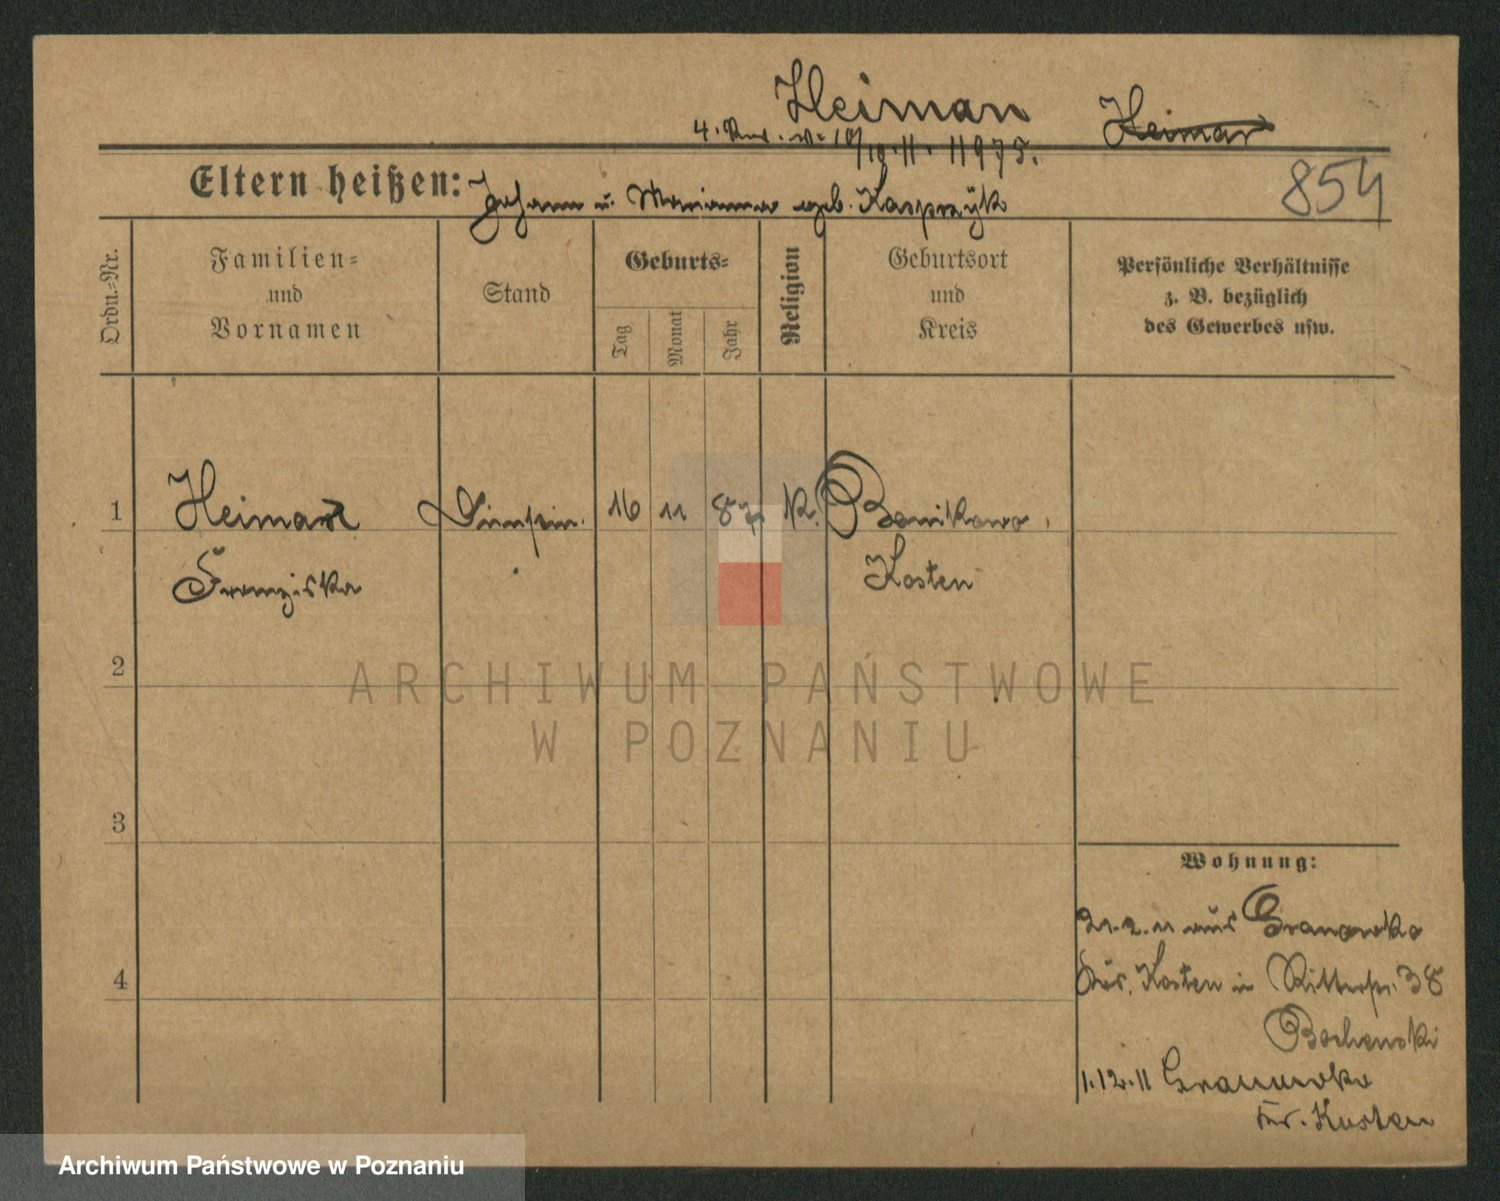 Heiman Heimar
11975.
854
Eltern heißen: Johann u. Marianna geb. Kasprzyk
Ordn.-Nr.
Familien-
und
Vornamen
Stand
Geburts-
Tag
Monat
Jahr
Religion
Geburtsort
und
Kreis
Persönliche Verhältnisse
z. B. bezüglich
des Gewerbes usw.
1 Heiman 16 11 87 K. Bonikowo,
Franziska Kosten
2
ARCHIWUM PAŃSTWOWE
W POZNANIU
3
Wohnung:
21.2.11 aus Granowko
4
Krs. Kosten in Ritterstr. 38
Bochenski
1.12.11 Granowko
Kr. Kosten
Archiwum Państwowe w Poznaniu